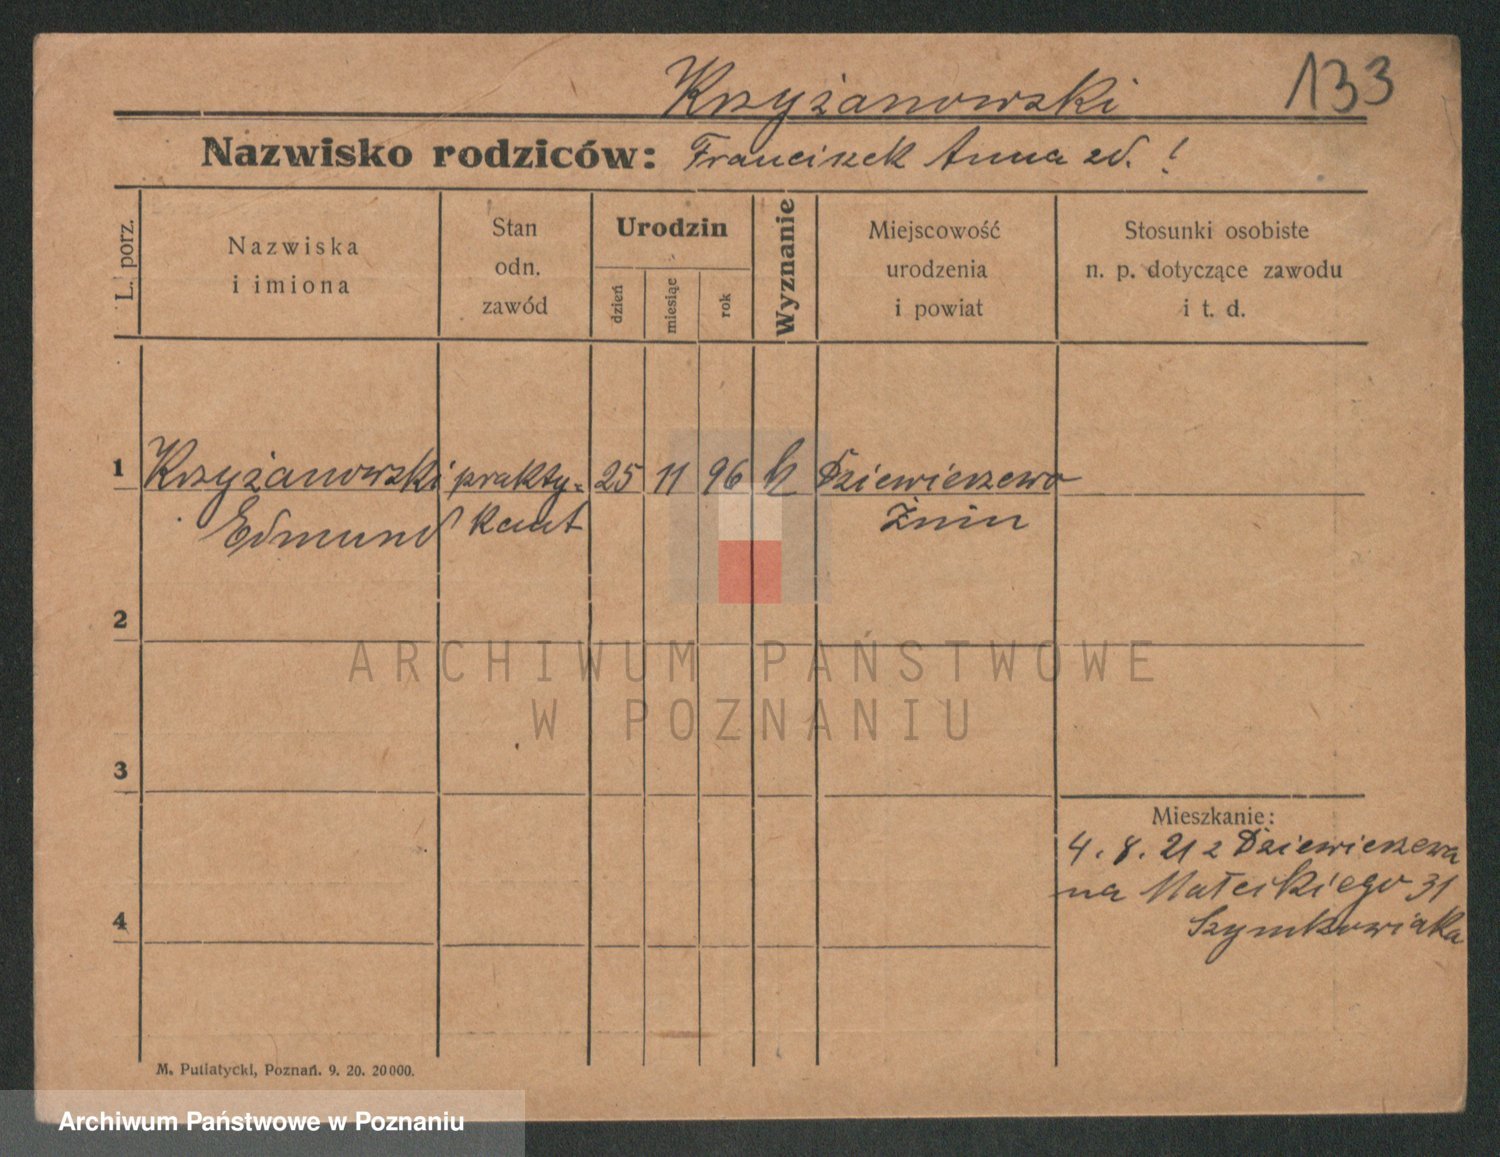 Krzyżanowski
133
Nazwisko rodziców: Franciszek Anna zd. !
L. porz.
Nazwiska
i imiona
Stan
odn.
zawód
Urodzin
dzień
miesiąc
rok
Wyznanie
Miejscowość
urodzenia
i powiat
Stosunki osobiste
n. p. dotyczące zawodu
i t. d.
1 Krzyżanowski prakty- 25 11 96 k Dziewierzewo
Edmund kant Żnin
2
3
4
Mieszkanie:
4. 8. 21 z Dziewierzewa
na Małeckiego 31
Szymkowiaka
M. Putiatycki, Poznań. 9. 20. 20000.
ARCHIWUM PAŃSTWOWE
W POZNANIU
Archiwum Państwowe w Poznaniu